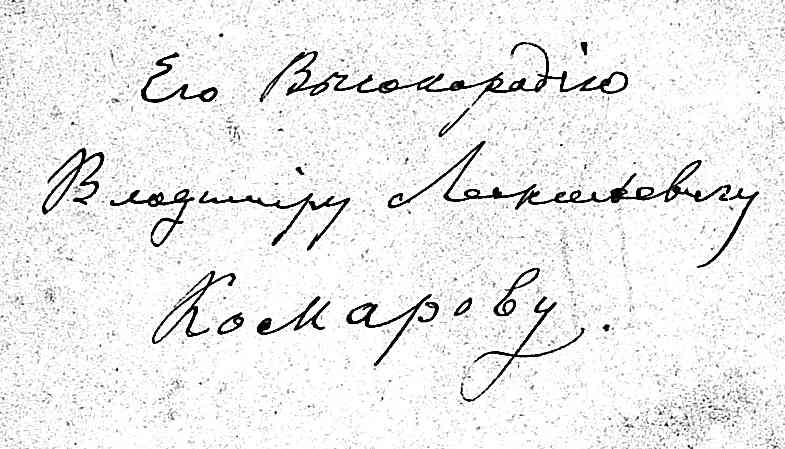 Его Высокородію
Владиміру Леонтьевичу
Комарову.